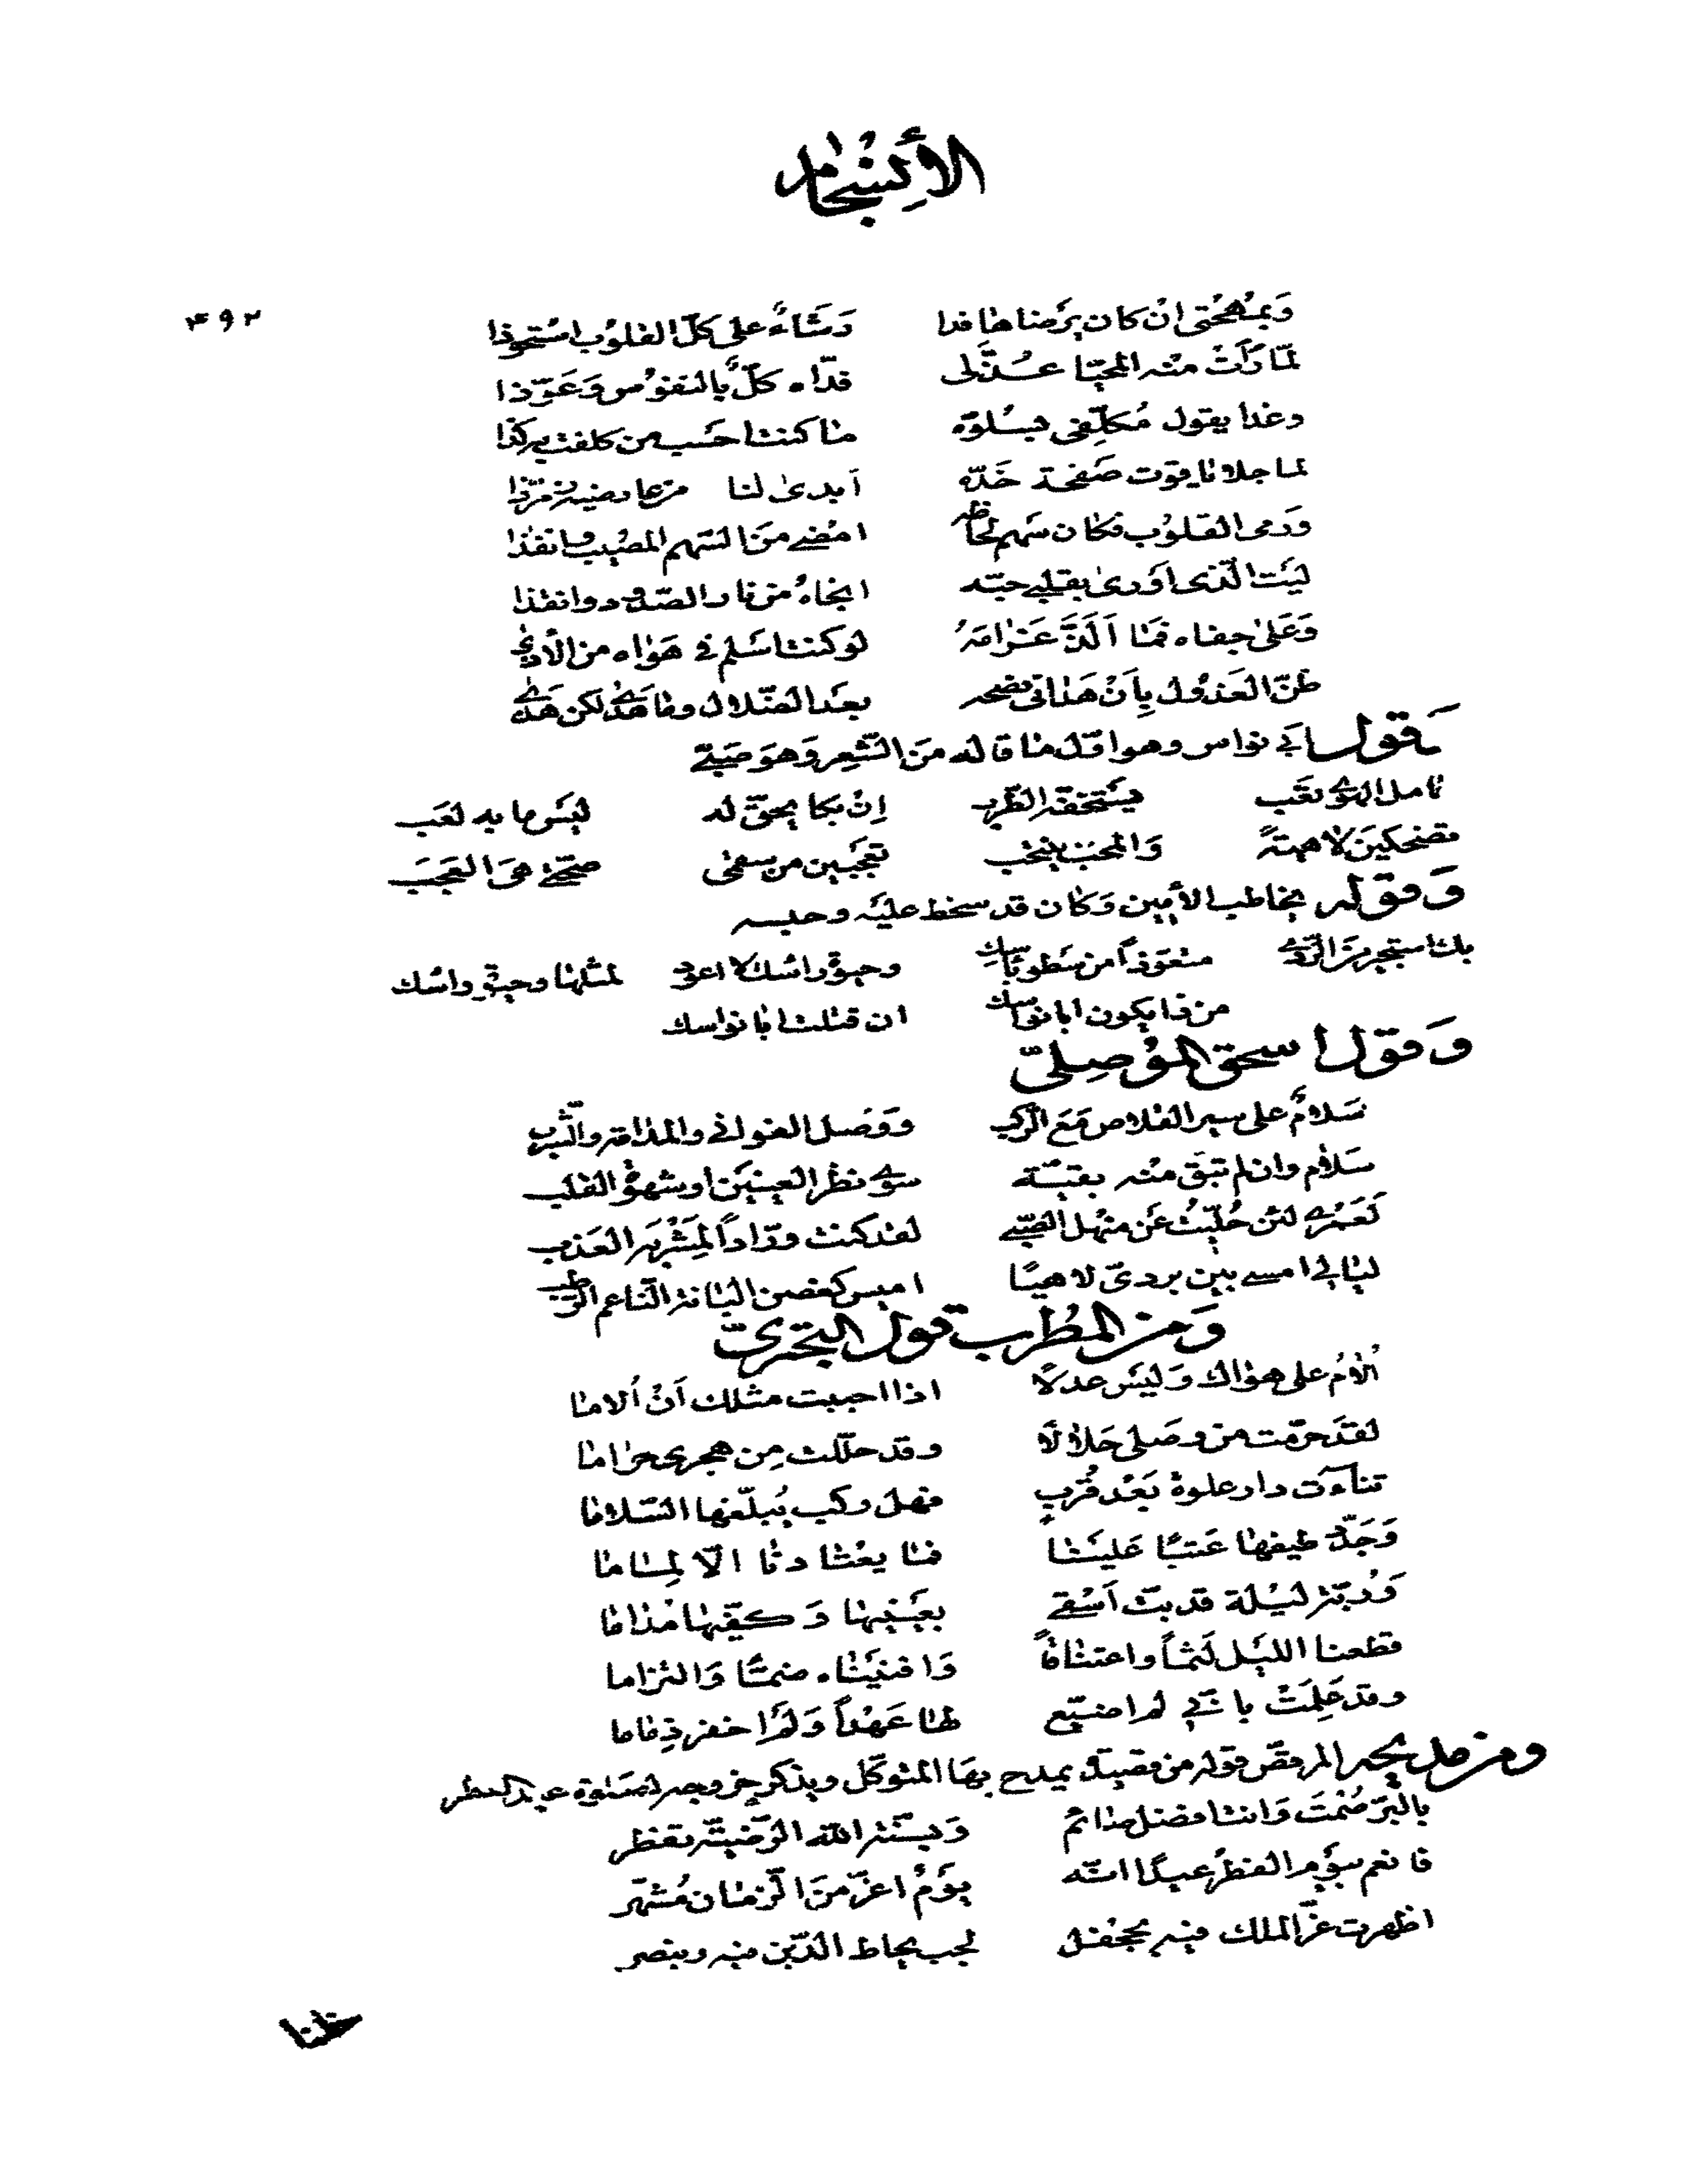 الأنسجام
٤٩٢
وَبمُهجْتى انْ كان يَرضاها فدا رَشَاءٌ على كلّ القلوُب اسْتحوذا
لمّا رَأَتْ منْه المحيّا عُذَّلى فدّاه كلٌّ بالنفوُس وَعَوّذا
وغدا يقول مُكلِّفى بسُلوّه ما كنت احَسب من كلفت به كذا
لما جلا ياقوت صَفحة خَدّه أبدىٰ لنا من عارضيه زمرّذا
ورمى القلوُب فكان سَهم لحاظه امْضى منَ السّهم المصُيب وانفذا
ليَت الّذى اوَرىٰ بقلبى حبّه انجاهُ من نار الصّدود وانقذا
وَعَلىٰ جفاه فمَا اَلَذَّ غَرامَهُ لو كنت اسَلم فى هَواه من الأذىٰ
ظنّ العَذوُل بِاَنْ هَدانى نصحه بعَد الضّلال وما هَدىٰ لكن هَذىٰ
وَقول ابى نواس وهو اوّل ما قاله منَ الشّعِر وَهوَ صَبىّ
حامل الهوىٰ تعَب يسَتخفّه الطّرب اِنْ بكا يحقّ له ليَس ما به لعَب
تضحكيَن لاهيةً وَالمحبّ ينتحب تعجَبين من سقمى صحّتى هىَ العَجَبَ
وَقوله يخاطب الأمين وَكان قد سخط عليَه وحبسه
بك استجير منَ الرّدىٰ متعَوّذاً من سَطوباسك وحيوة راسْك لا اعود لمثلها وحيوة راسْك
من ذا يكون ابا نواسك ان قتلت ابا نواسك
وَقول اسحق الموُصِلىّ
سَلامٌ على سير القلاص مَعَ الرّكب وَوَصَل الغوانى والمدامة والشّرب
سَلام وان لم تبَق منْه بقيّة سوىٰ نظر العينيَن او شهوة القلب
لَعَمْرى لئن حُلِّئتُ عَن منهل الصّبى لقد كنت ورّاداً لِمَشْربَه العَذب
ليالى امسى بين بردىّ لاهيًا اميس كغصن البانة النّاعم الرّطب
وَمن المُطرب قول البحترىّ
اُلامُ على هواك وَليَس عدلًا اذا احببت مثلك اَنْ اُلاما
لقدَ حرّمت من وصَلى حَلالًا وقد حلّلت مِن هجرى حراما
تناءَت دار علوة بَعْد قُربٍ فهل ركب يُبلّغها السّلاما
وَجَدّد طيفها عَتبًا عَليَنا فما يعْتادنا الّا لِماما
وَرُبّت ليْلة قد بتّ اَسْقى بعَينيها وَكفّيها مُداما
قطعنا الليَل لَثماً واعتناقاً وَافنيَناه ضمّا وَالتزاما
وقد عَلِمَتْ بانّى لم اضيّع لها عَهْداً وَلم اَخفر ذِماما
ومن مديحه المرقص قوله من قصيدة يمدح بها المتوكّل ويذكر خروجه لصَلوة عيد الفطر
بالبرّ صُمْتَ وَانت افضل صائم وَبسنّة اللّه الرّضيّة تفطر
فانعم بيَوم الفطر عيدًا انّه يوَمٌ اعزّ منَ الزّمان مُشهّر
اظهرت عزّ الملك فيه بجحْفل لجب يحاط الدّين فيه وينصر
خلنا